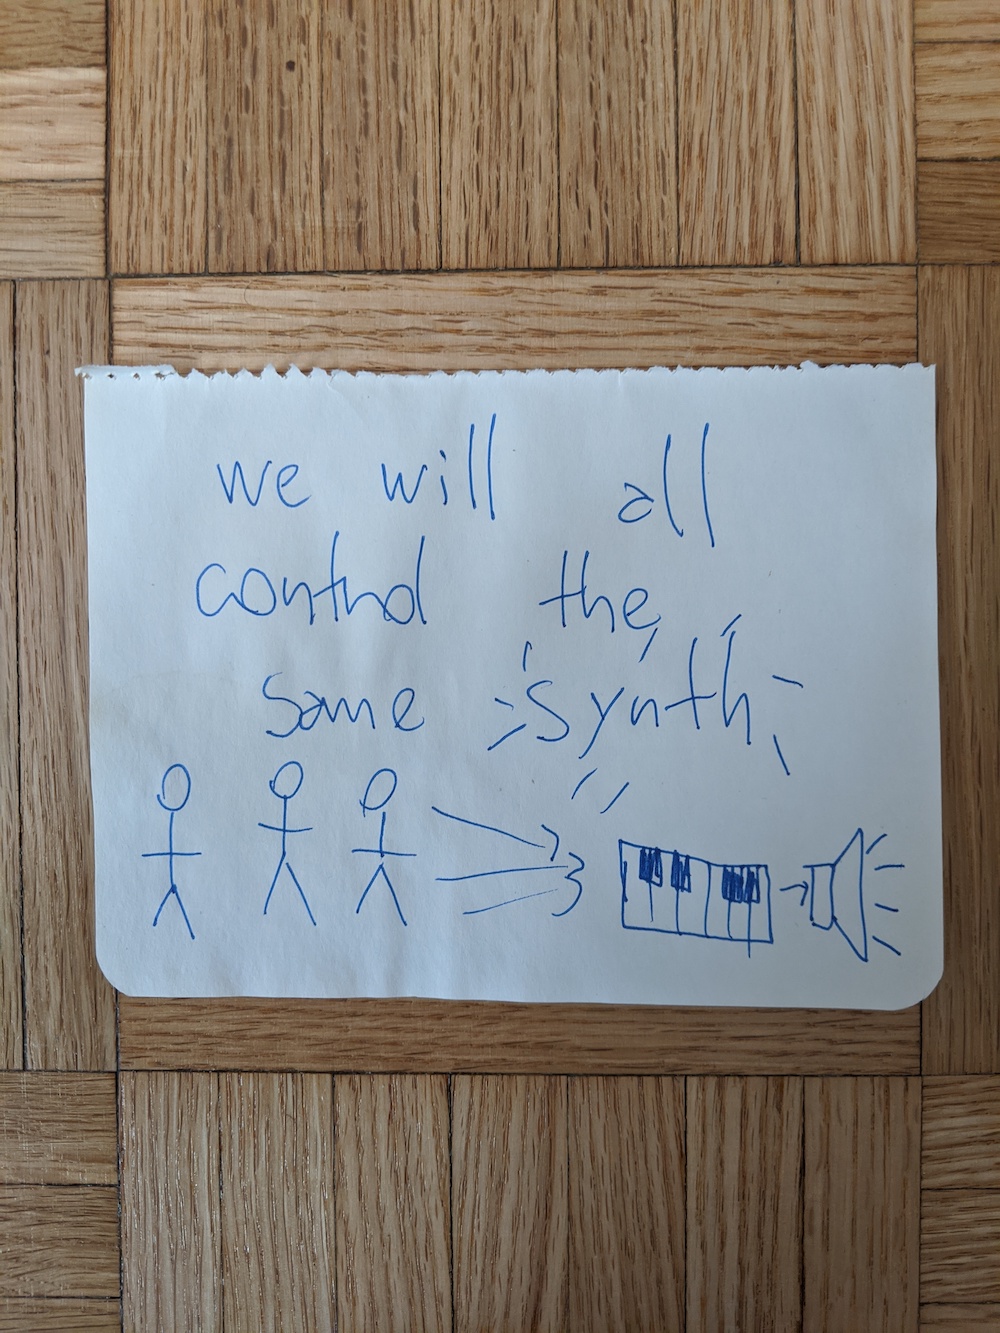 we will all
control the
same synth